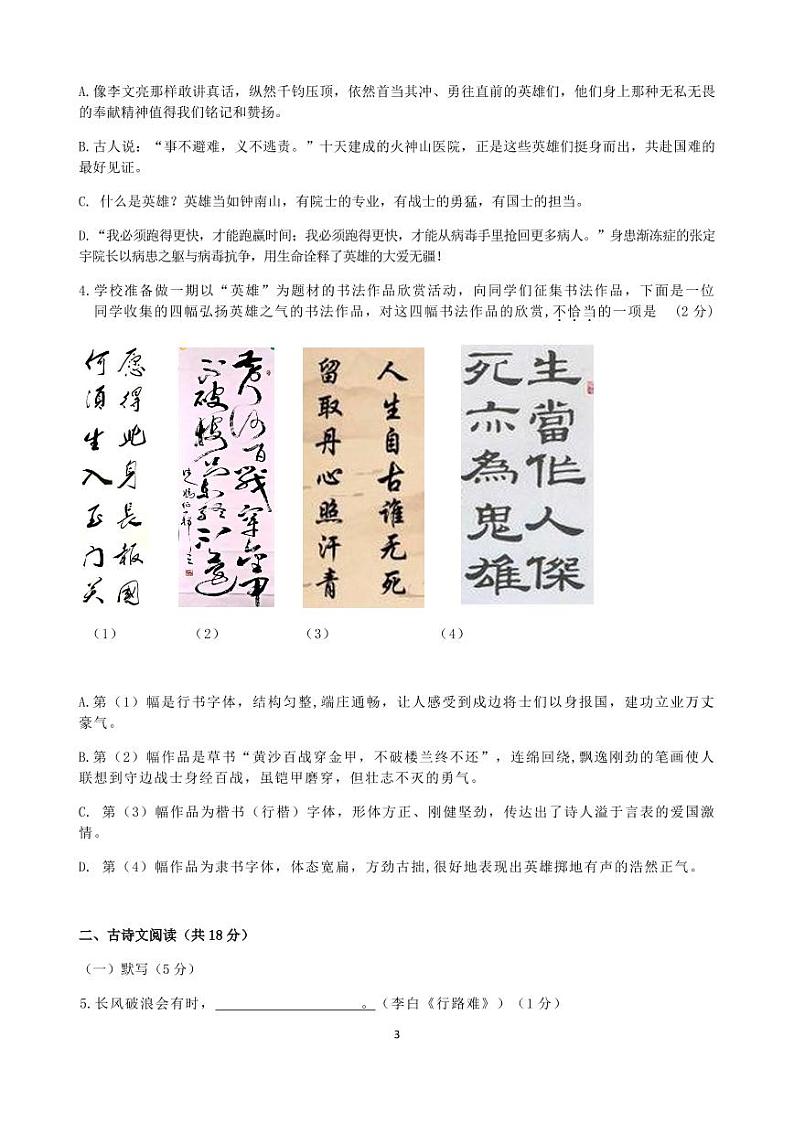 A.像李文亮那样敢讲真话，纵然千钧压顶，依然首当其冲、勇往直前的英雄们，他们身上那种无私无畏
的奉献精神值得我们铭记和赞扬。
B.古人说：“事不避难，义不逃责。”十天建成的火神山医院，正是这些英雄们挺身而出，共赴国难的
最好见证。
C. 什么是英雄？英雄当如钟南山，有院士的专业，有战士的勇猛，有国士的担当。
D.“我必须跑得更快，才能跑赢时间；我必须跑得更快，才能从病毒手里抢回更多病人。”身患渐冻症的张定
宇院长以病患之躯与病毒抗争，用生命诠释了英雄的大爱无疆！
4.学校准备做一期以“英雄”为题材的书法作品欣赏活动，向同学们征集书法作品，下面是一位
同学收集的四幅弘扬英雄之气的书法作品，对这四幅书法作品的欣赏,不恰当的一项是 (2 分)
愿得此身长报国
何须生入玉门关
黄沙百战穿金甲
不破楼兰终不还
人生自古谁无死
留取丹心照汗青
生當作人傑
死亦為鬼雄
（1） （2） （3） （4）
A.第（1）幅是行书字体，结构匀整,端庄通畅，让人感受到戍边将士们以身报国，建功立业万丈
豪气。
B.第（2）幅作品是草书“黄沙百战穿金甲，不破楼兰终不还”，连绵回绕,飘逸刚劲的笔画使人
联想到守边战士身经百战，虽铠甲磨穿，但壮志不灭的勇气。
C. 第（3）幅作品为楷书（行楷）字体，形体方正、刚健坚劲，传达出了诗人溢于言表的爱国激
情。
D. 第（4）幅作品为隶书字体，体态宽扁，方劲古拙,很好地表现出英雄掷地有声的浩然正气。
二、古诗文阅读（共 18 分）
（一）默写（5 分）
5.长风破浪会有时，________________。（李白《行路难》）（1 分）
3